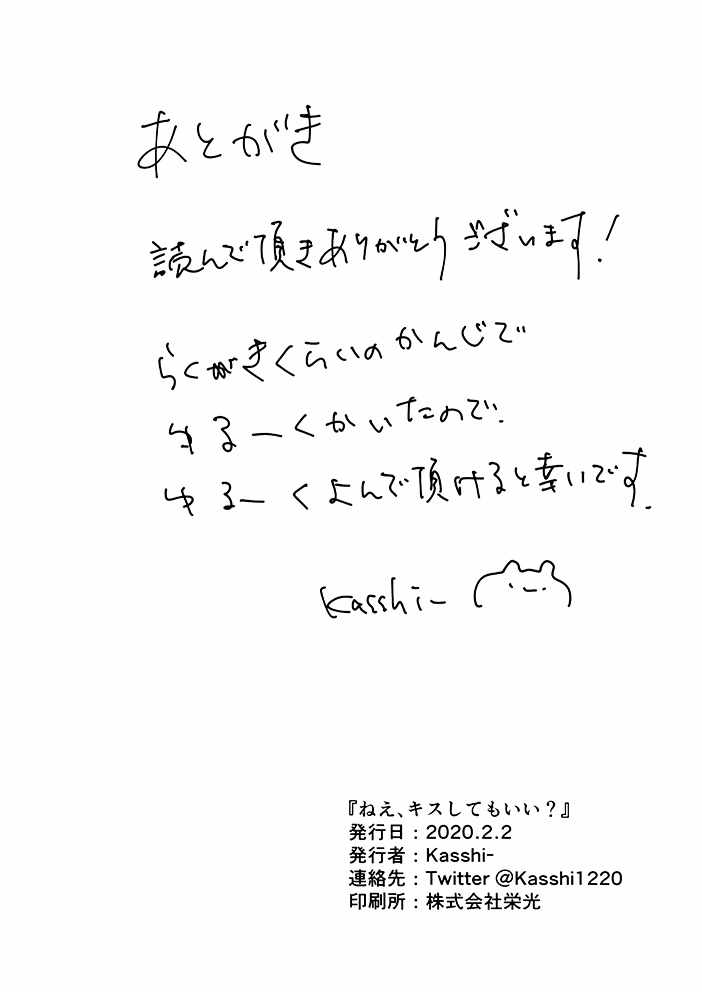 あとがき
読んで頂きありがとうございます!
らくがきくらいのかんじで
ゆるーくかいたので.
ゆるーくよんで頂けると幸いです.
Kasshi-
『ねえ、キスしてもいい？』
発行日：2020.2.2
発行者：Kasshi-
連絡先：Twitter @Kasshi1220
印刷所：株式会社栄光